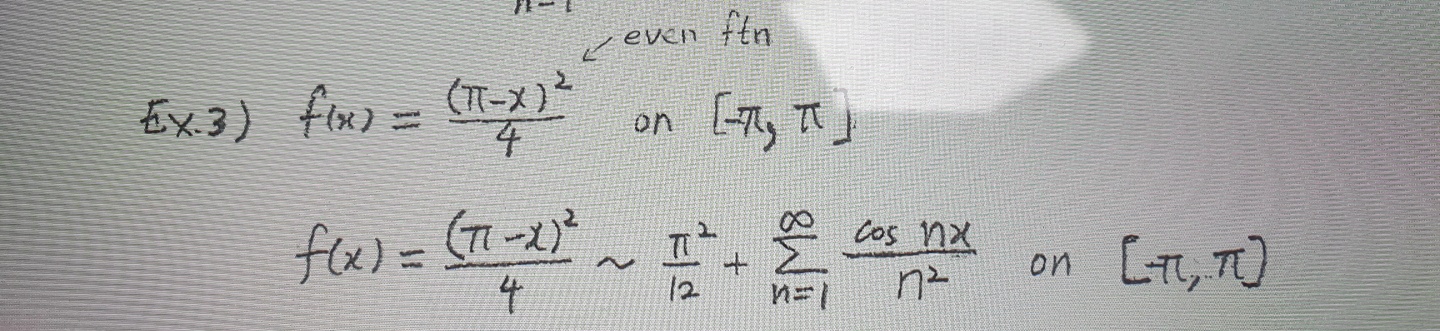 even ftn
Ex.3) f(x) = (π-x)²/4 on [-π, π]
f(x) = (π-x)²/4 ~ π²/12 + ∑_{n=1}^{∞} cos nx / n² on [-π, π]